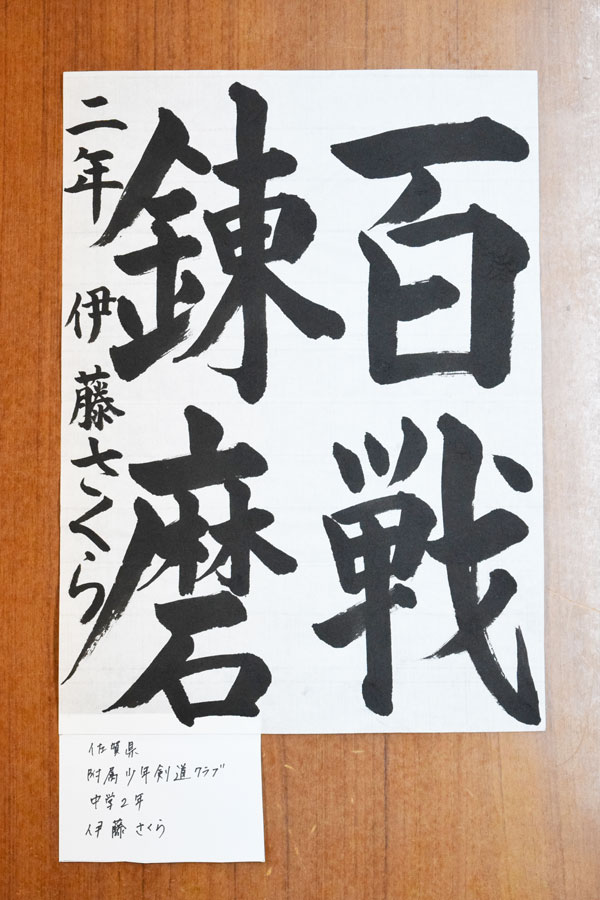 百戦
錬磨
二年 伊藤さくら
佐賀県
附属少年剣道クラブ
中学2年
伊藤さくら